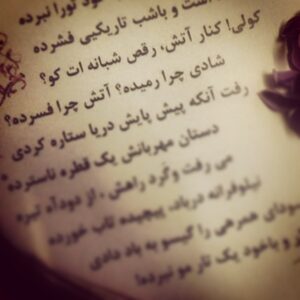 است و باشب تاریکیی فشرده
کولی! کنار آتش، رقص شبانه ات کو؟
شادی چرا رمیده؟ آتش چرا فسرده؟
رفت آنکه پیش پایش دریا ستاره کردی
دستان مهربانش یک قطره ناسترده
می رفت وگرد راهش، از دودآه تیره
نیلوفرانه درباد، پیچیده تاب خورده
سودای همرهی را گیسو به باد دادی
و باخود یک تار مو نبرده!